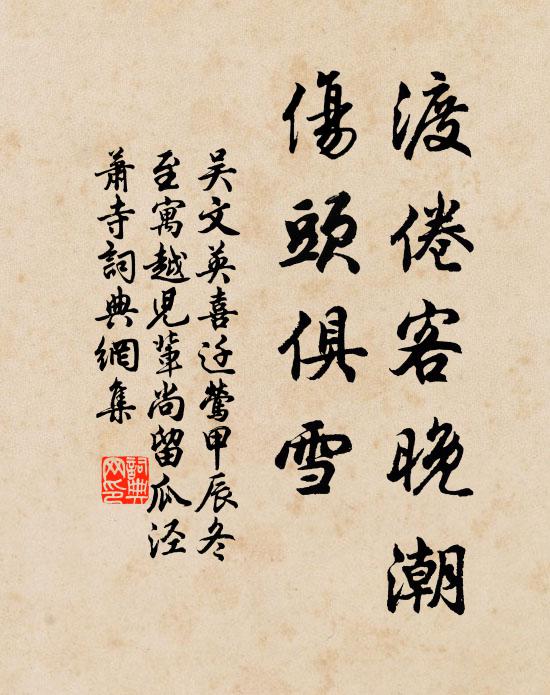 渡倦客晚潮
傷頭俱雪
吴文英喜迁鶯甲辰冬
至寓越兒輩尚留瓜泾
萧寺詞典網集
詞典
网印